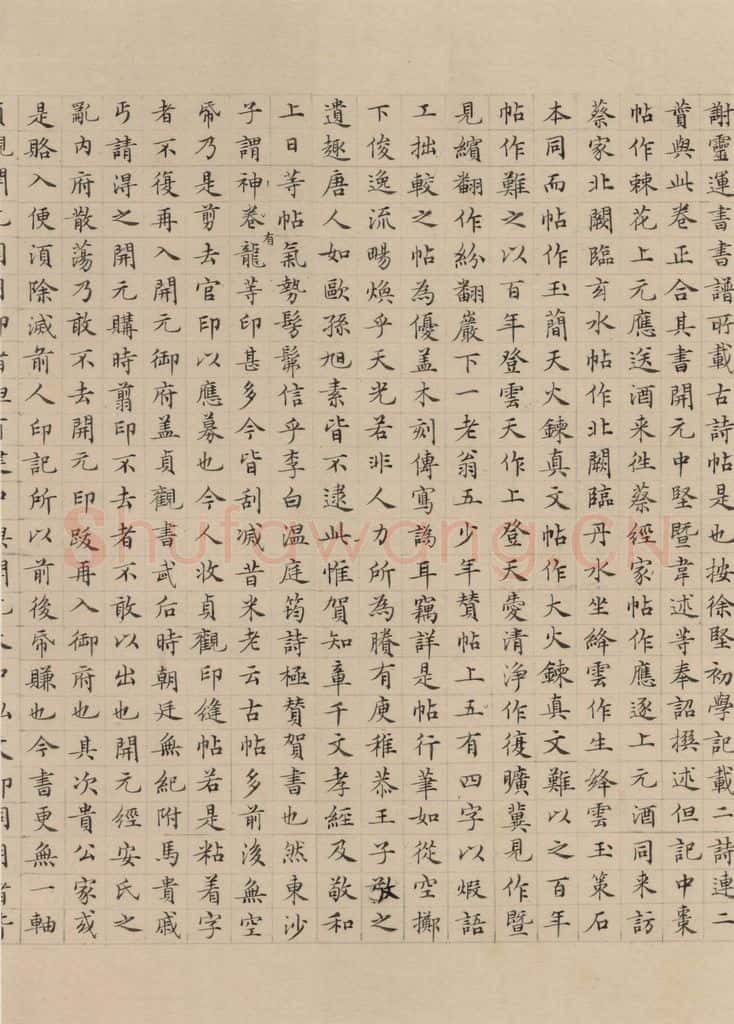 謝靈運書書譜所載古詩帖是也按徐堅初學記載二詩連二
賛與此卷正合其書開元中堅暨韋述等奉詔撰述但記中棗
帖作棘花上元應送酒来徃蔡經家帖作應逐上元酒同来訪
蔡家北闕臨玄水帖作北闕臨丹水坐絳雲作生絳雲玉策石
本同而帖作玉簡天火鍊真文帖作大火鍊真文難以之百年
帖作難之以百年登雲天作上登天愛清浄作復曠兾見作暨
見繽翻作紛翻巖下一老翁五少年賛帖上五有四字以煆語
工拙較之帖為優盖木刻傳寫譌耳竊詳是帖行筆如從空擲
下俊逸流暢煥乎天光若非人力所為賸有庾稚恭王子敬之
遺趣唐人如歐孫旭素皆不逮此惟賀知章千文孝經及敬和
上日等帖氣勢髣髴信乎李白温庭筠詩極賛賀書也然東沙
子謂神卷有龍等印甚多今皆刮滅昔米老云古帖多前後無空
帋乃是剪去官印以應募也今人收貞觀印縫帖若是粘着字
者不復再入開元御府盖貞觀書武后時朝廷無紀附馬貴戚
丐請淂之開元購時剪印不去者不敢以出也開元經安氏之
亂内府散蕩乃敢不去開元印跋再入御府也其次貴公家或
是賂入便湏除滅前人印記所以前後帋賺也今書更無一軸
Shufawang.CN